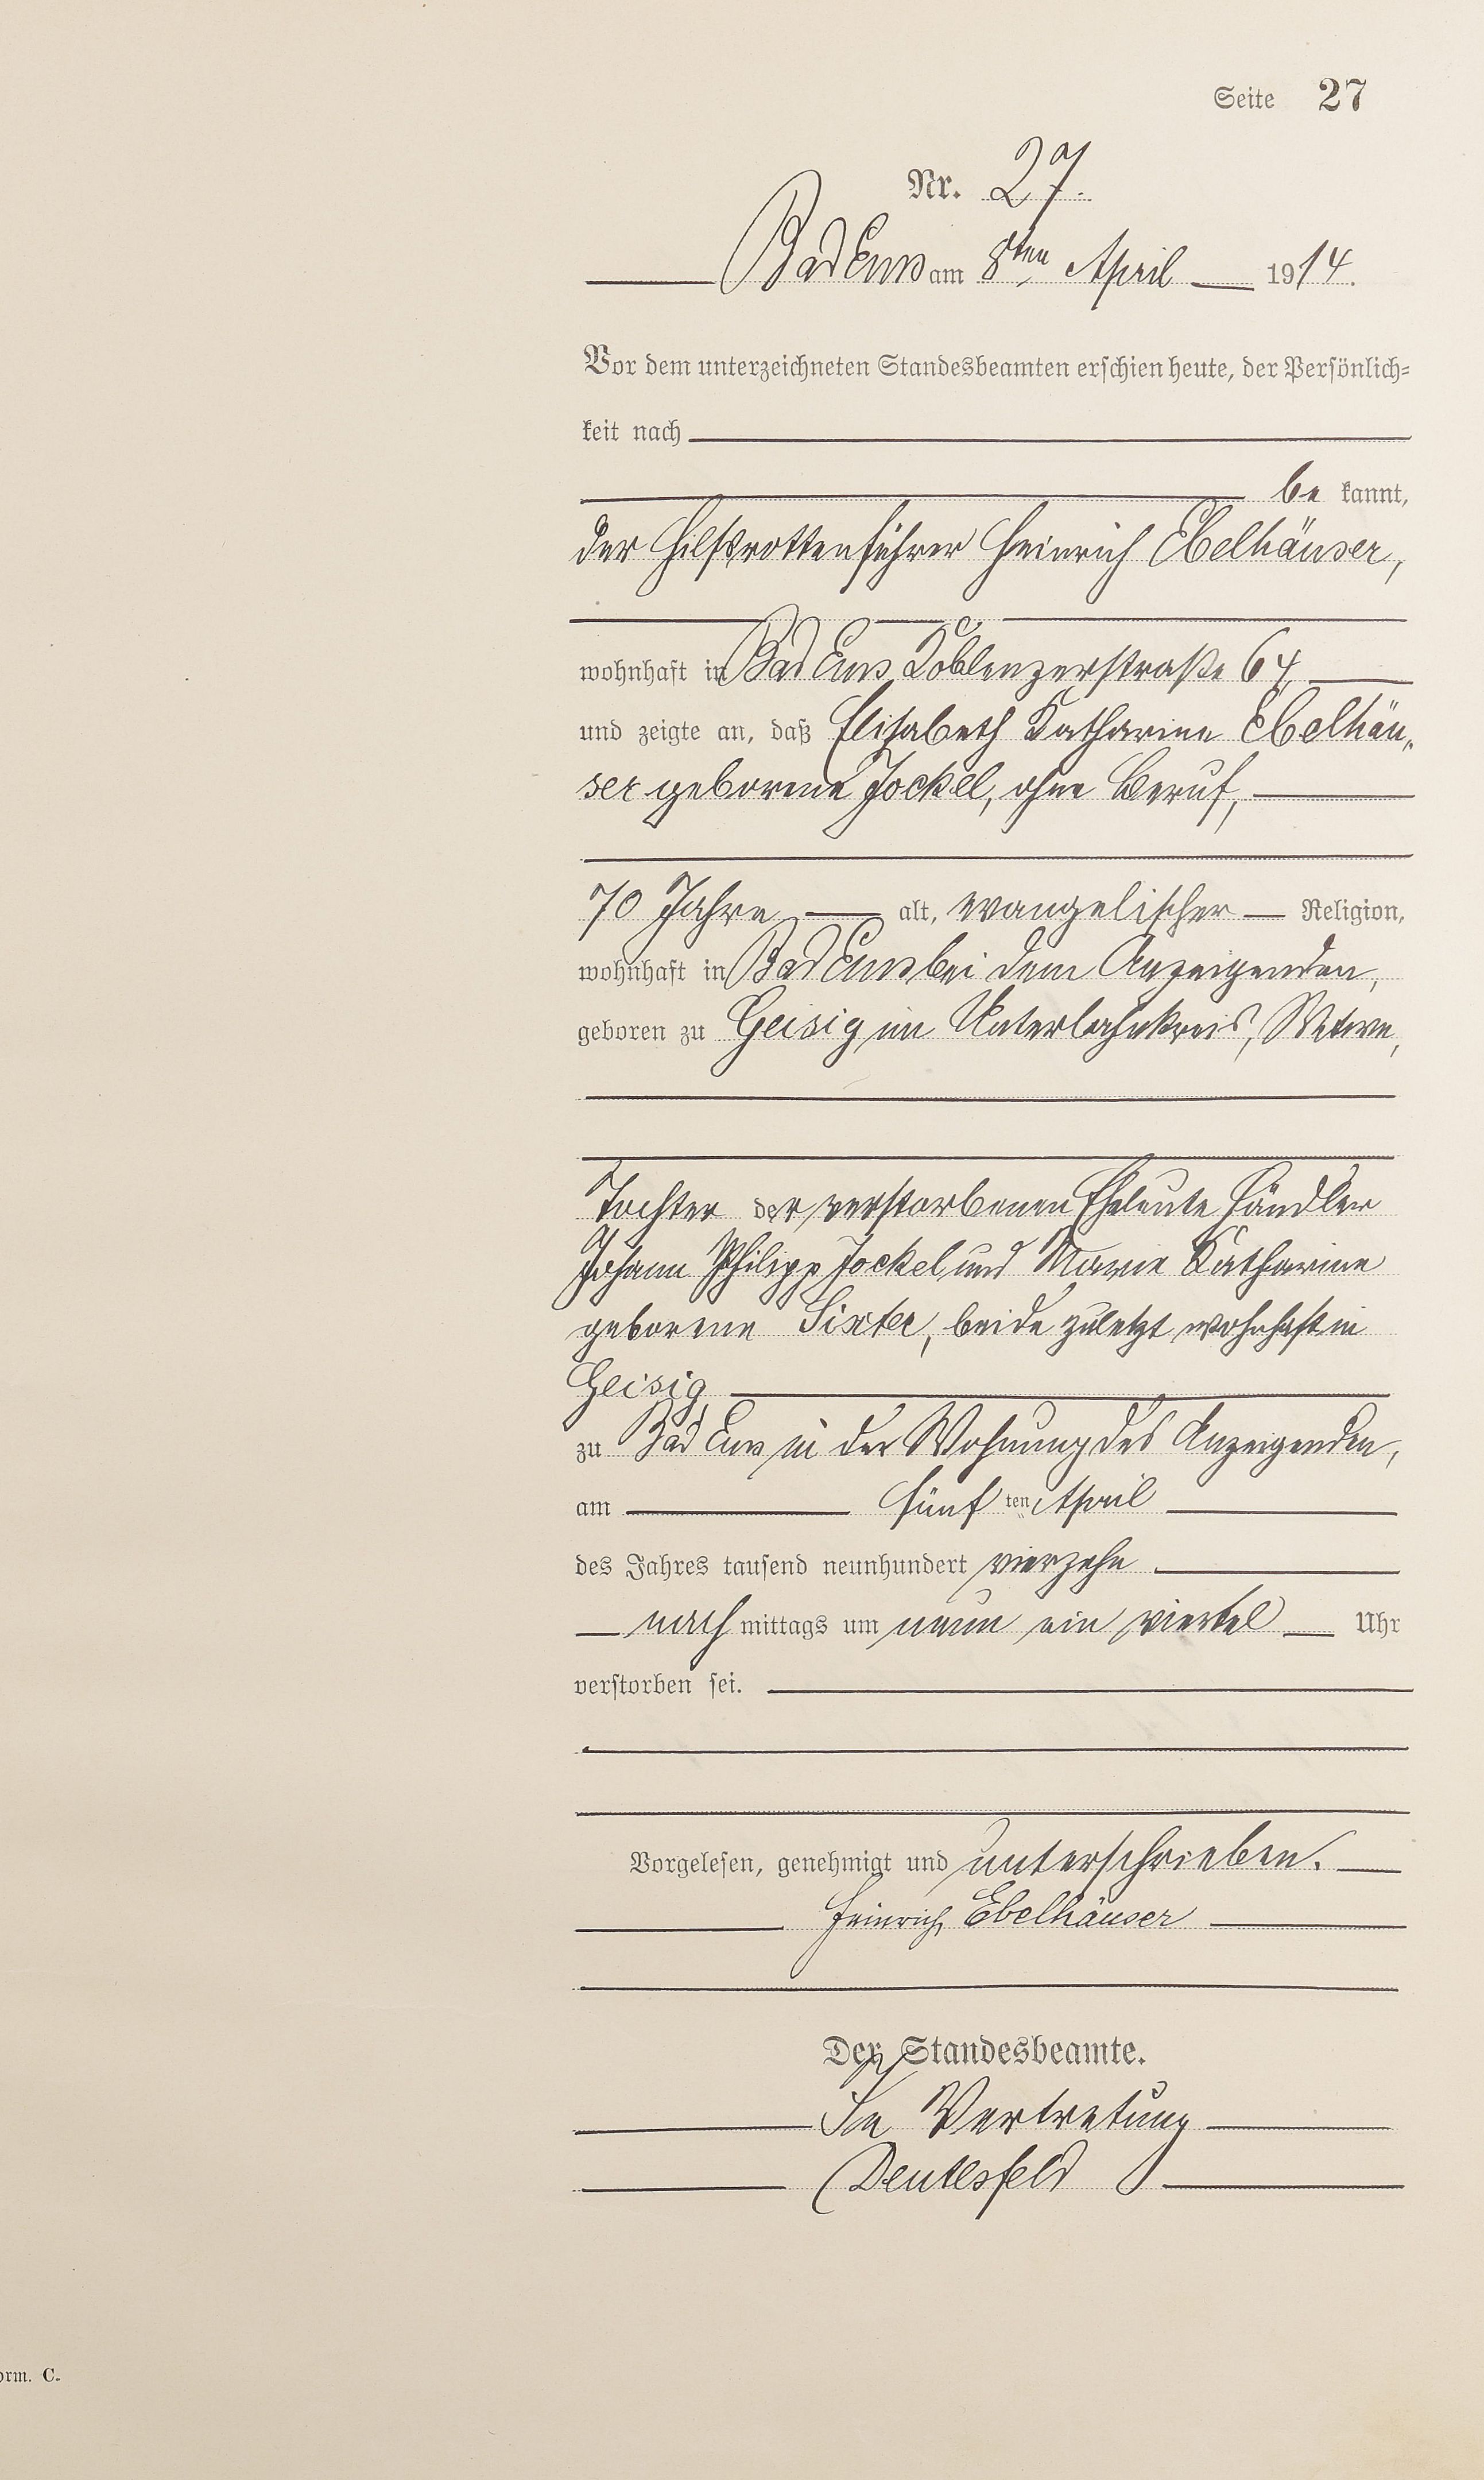 Seite 27
Nr. 27.
Bad Ems am 8ten April 1914.
Vor dem unterzeichneten Standesbeamten erschien heute, der Persönlich-
keit nach
be kannt,
der Hilfsrottenführer Heinrich Ebelhäuser,
wohnhaft in Bad Ems, Koblenzerstraße 64,
und zeigte an, daß Elisabeth Katharine Ebelhäu„
ser geborene Jockel, ohne Beruf,
70 Jahre alt, evangelischer Religion,
wohnhaft in Bad Ems bei dem Anzeigenden,
geboren zu Geisig im Unterlahnkreis, Witwe,
Tochter der verstorbenen Eheleute Händler
Johann Philipp Jockel und Marie Katharine
geborene Sixter, beide zuletzt wohnhaft in
Geisig,
zu Bad Ems in der Wohnung des Anzeigenden,
am fünf ten April
des Jahres tausend neunhundert vierzehn
nach mittags um neun ein viertel Uhr
verstorben sei.
Vorgelesen, genehmigt und unterschrieben.
Heinrich Ebelhäuser
Der Standesbeamte.
In Vertretung
orm. C.